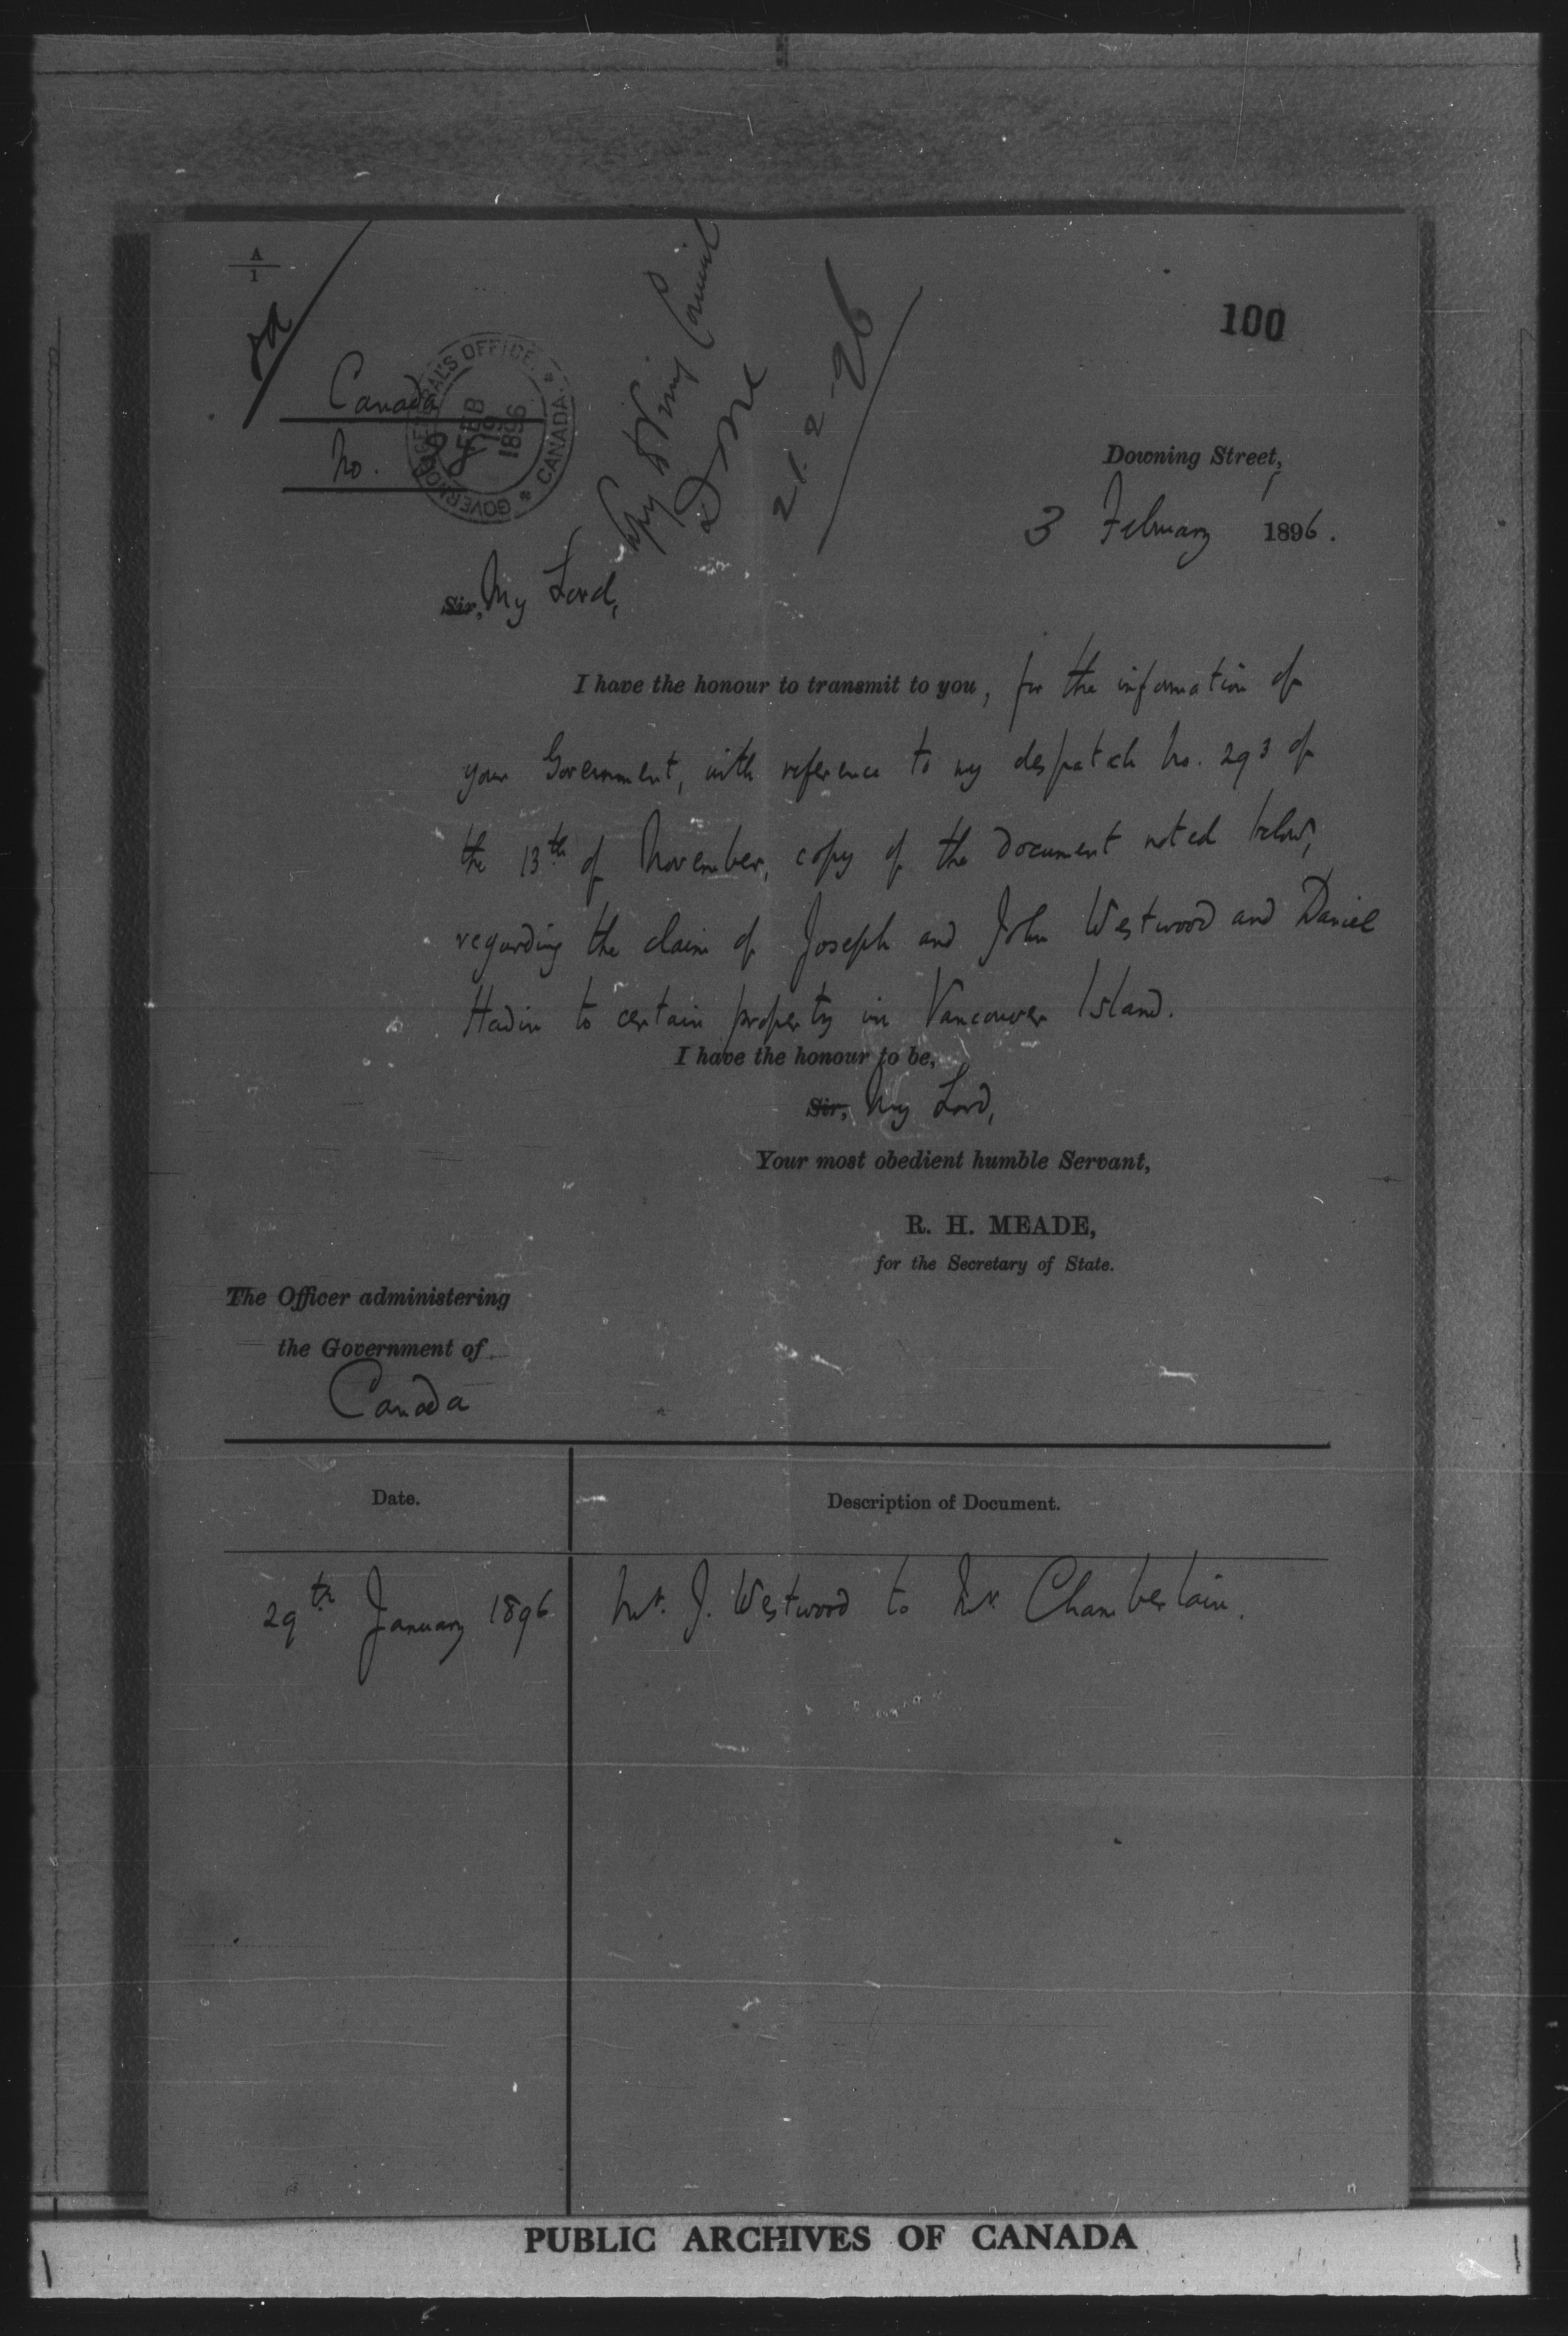 A
1
100
Canada
No.
GOVERNOR GENERAL'S OFFICE * CANADA *
FEB
19
1896
Copy to Privy Council
Done
21.2.96
Downing Street,
3 February 1896.
Sir, My Lord,
I have the honour to transmit to you, for the information of
your Government, with reference to my despatch No. 293 of
the 13th of November, copy of the Document noted below,
regarding the claim of Joseph and John Westwood and Daniel
Hadin to certain property in Vancouver Island.
I have the honour to be,
Sir, My Lord,
Your most obedient humble Servant,
R. H. MEADE,
for the Secretary of State.
The Officer administering
the Government of
Canada
Date. Description of Document.
29th January 1896 Mr. J. Westwood to Mr. Chamberlain.
PUBLIC ARCHIVES OF CANADA